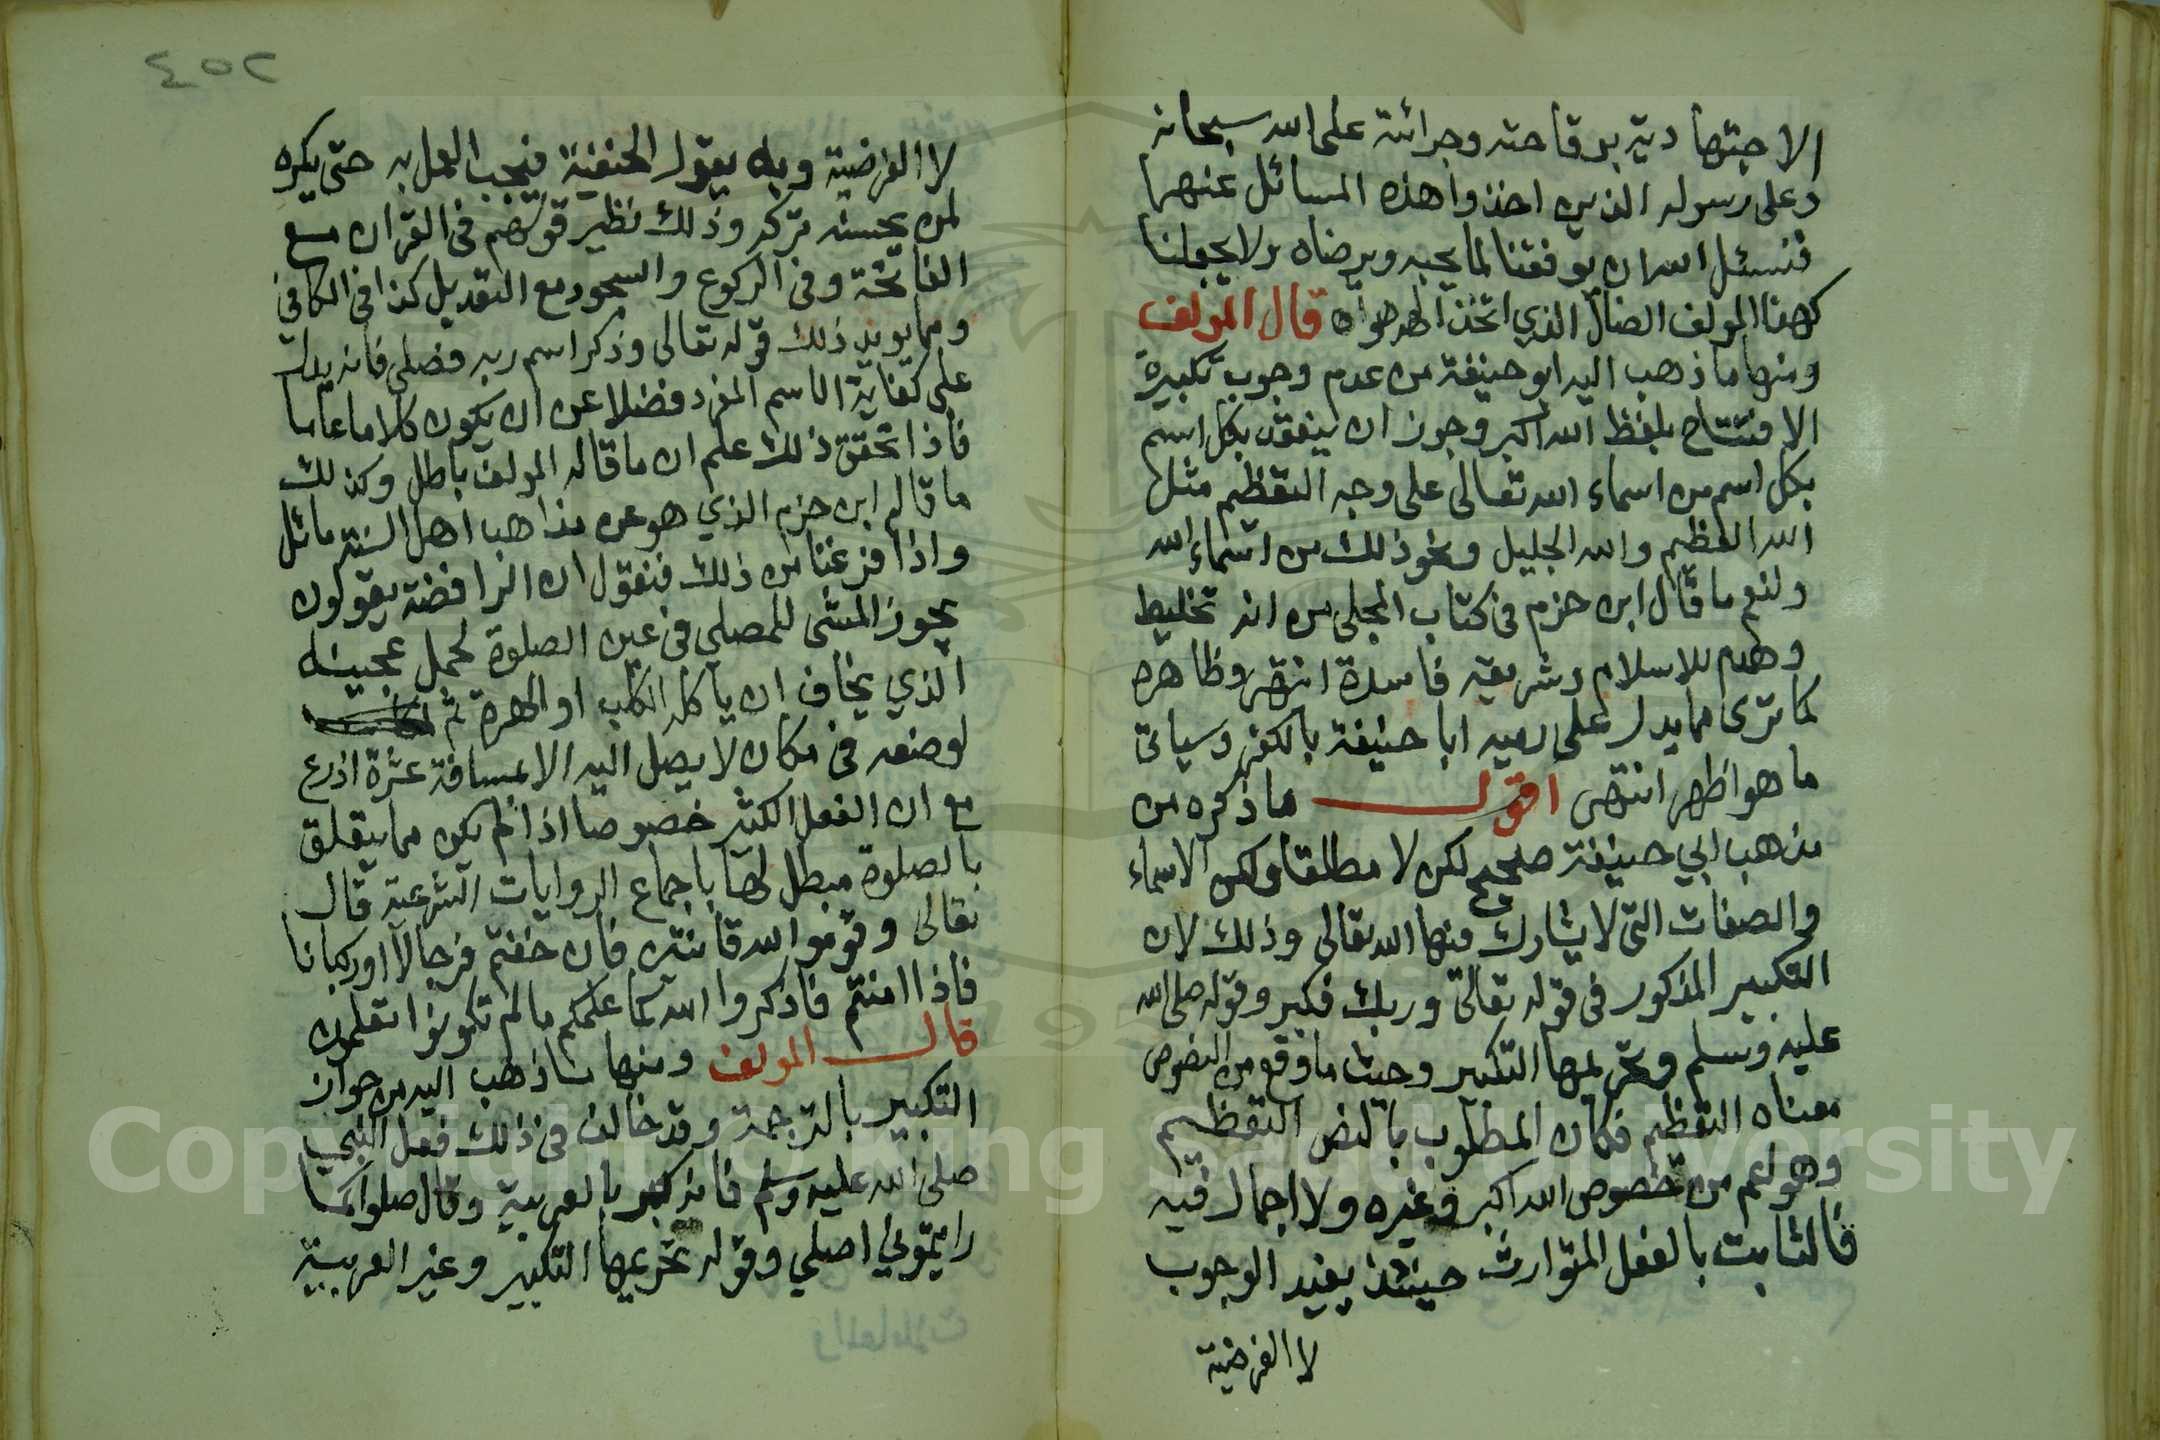 الاجتهادية بوقاحته وجرائته على الله سبحانه
وعلى رسوله الذين اخذوا هذه المسائل عنهما
فنسئل الله ان يوفقنا لما يحبه ويرضاه ولا يجعلنا
كهذا المولف الضال الذي اتخذ الهه هواه قال المولف
ومنها ما ذهب اليه ابو حنيفة من عدم وجوب تكبيرة
الافتتاح بلفظ الله اكبر وجوز ان ينعقد بكل اسم
بكل اسم من اسماء الله تعالى على وجه التعظيم مثل
الله العظيم والله الجليل ونحو ذلك من اسماء الله
ولنعم ما قال ابن حزم في كتاب المحلى من انه تخليط
وهدم للاسلام وشريعة فاسدة انتهى وظاهره
كما ترى مما يدل على رميه ابا حنيفة بالكفر وسياتى
ما هو اظهر انتهى اقول ما ذكره من
مذهب ابي حنيفة صحيح لكن لا مطلقا ولكن الاسماء
والصفات التى لا يشارك فيها الله تعالى وذلك لان
التكبير المذكور فى قوله تعالى وربك فكبر وقوله صلى الله
عليه وسلم وتحريمها التكبير وحيث ما وقع من النصوص
معناه التعظيم فكان المطلوب بالنص التعظيم
وهو اعم من خصوص الله اكبر وغيره ولا اجمال فيه
فالثابت بالفعل المتوارث حينئذ يفيد الوجوب
لا الفرضية
٤٥٢
لا الفرضية وبه يقول الحنفية فيجب العمل به حتى يكره
لمن يحسنه تركه وذلك نظير قولهم فى القران مع
الفاتحة وفى الركوع والسجود مع التعديل كذا فى الكافى
ومما يويد ذلك قوله تعالى وذكر اسم ربه فصلى فانه يدل
على كفاية الاسم المفرد فضلا عن ان يكون كلاما عاما
فاذا تحقق ذلك علم ان ما قاله المولف باطل وكذلك
ما قاله ابن حزم الذي هو عن مذاهب اهل السنة مائل
واذا فرغنا من ذلك فنقول ان الرافضة يقولون
يجوز المشى للمصلى فى عين الصلوة لحمل عجينه
الذي يخاف ان ياكله الكلب او الهرة ثم
لوضعه فى مكان لا يصل اليه الا بمسافة عشرة اذرع
مع ان الفعل الكثير خصوصا اذا لم يكن مما يتعلق
بالصلوة مبطل لها باجماع الروايات الشرعية قال
تعالى وقوموا لله قانتين فان خفتم فرجالا او ركبانا
فاذا امنتم فاذكروا الله كما علمكم ما لم تكونوا تعلمون
قال المولف ومنها ما ذهب اليه من جواز
التكبير بالترجمة وقد خالف فى ذلك فعل النبى
صلى الله عليه وسلم فانه كبر بالعربية وقال صلوا كما
رايتموني اصلي وقوله تحريمها التكبير وغير العربية
Copyright © King Saud University
1957